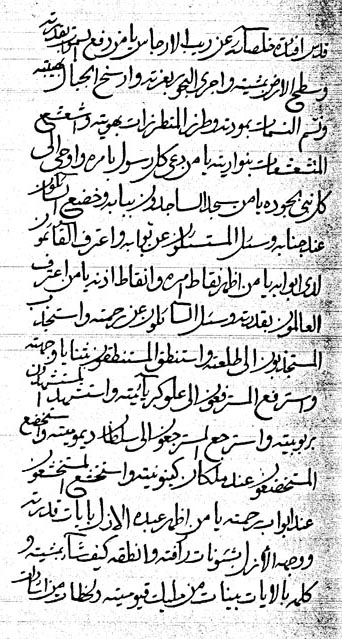 قدس افئدة خلصائه عن ريب الارجاس يا من رفع السماء بقدرته
وسطح الارض بمشيته واجرى البحور بعزته وارسخ الجبال بهيبته
ونسم النسمات بمودته وطرز المتطرزات بهويته وشعشع
المتشعشعات بنوارينه يا من دعى كل رسول بامره واوحى الى
كل نبي بجوده يا من سجد الساجدون ببابه وخضع الساكنون
عند جنابه وسئل المستسئلون عن نجابه واعرف القائمون
لدى ابوابه يا من اظهر نقاط امره وانقاط اذنه يا من اعترف
العالمون بقدرته وسئل السائلون عن رحمته واستجذب
المستجذبون الى طلعته واستنطق المستنطقون بثناء وجهته
واسترفع المسترفعون الى علو كبريائيته واستشهد المستشهدون
بربوبيته واسترجع المسترجعون الى سلطان ديموميته واستخضع
المستخضعون عند ملكان كينونيته واستخشع المستخشعون
عند ابواب رحمته يا من اظهر عبده الازل بايات قدرته
ووجهه الأزل بشئونات رأفته وانطقه كيف شاء بمشيته و
كلمه بالايات بينات من مليك قيوميته